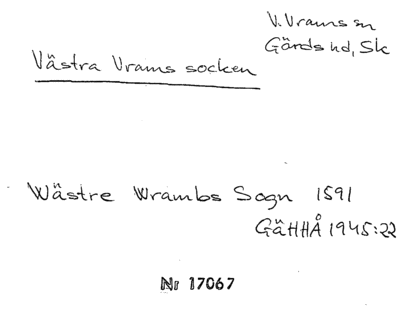 V. Vrams sn
Gärds hd, Sk
Västra Vrams socken
Wästre Wrambs Sogn 1591
GäHHÅ 1945:22
Nr 17067